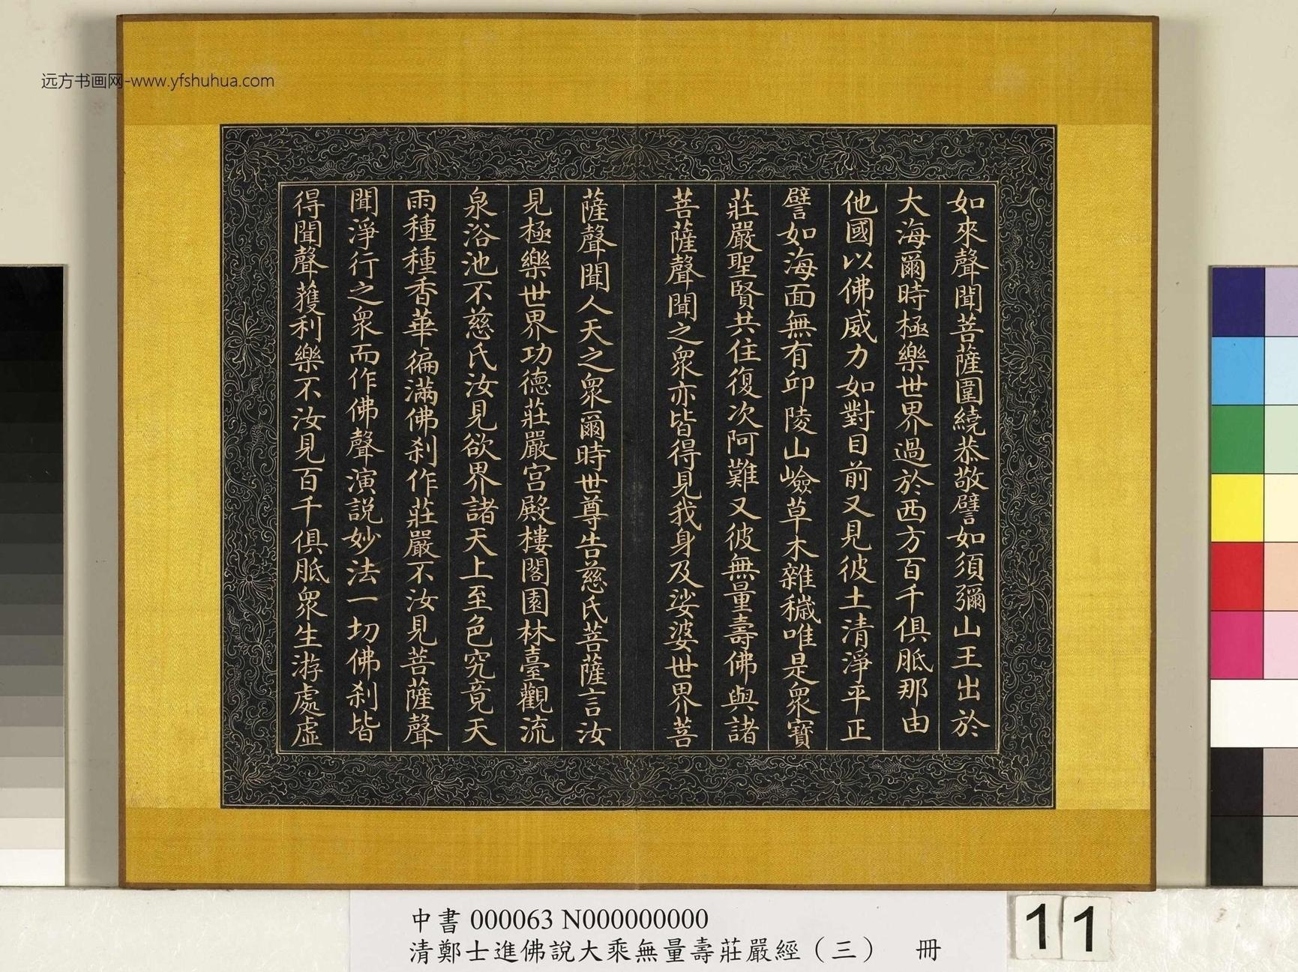 远方书画网-www.yfshuhua.com
如來聲聞菩薩圍繞恭敬譬如須彌山王出於
大海爾時極樂世界過於西方百千俱胝那由
他國以佛威力如對目前又見彼土清淨平正
譬如海面無有邱陵山嶮草木雜穢唯是眾寶
莊嚴聖賢共住復次阿難又彼無量壽佛與諸
菩薩聲聞之眾亦皆得見我身及娑婆世界菩
薩聲聞人天之眾爾時世尊告慈氏菩薩言汝
見極樂世界功德莊嚴宮殿樓閣園林臺觀流
泉浴池不慈氏汝見欲界諸天上至色究竟天
雨種種香華徧滿佛刹作莊嚴不汝見菩薩聲
聞淨行之眾而作佛聲演說妙法一切佛刹皆
得聞聲獲利樂不汝見百千俱胝眾生游處虛
中書 000063 N000000000
清鄭士進佛說大乘無量壽莊嚴經（三） 冊
11